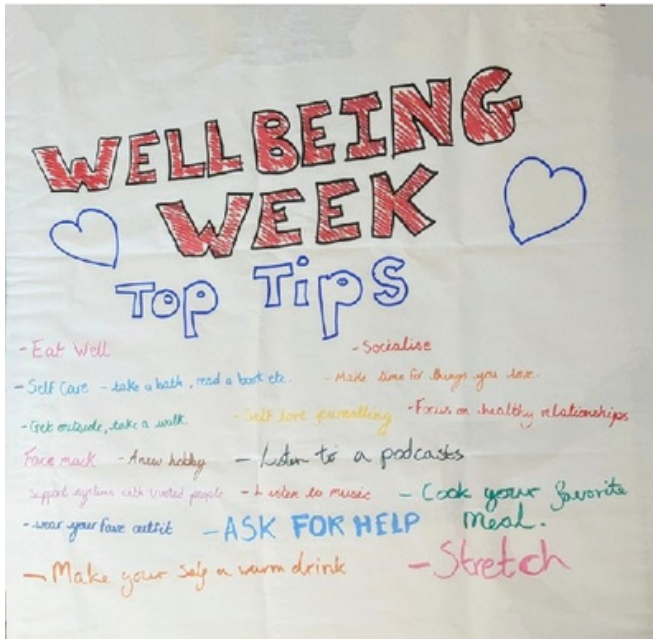 WELLBEING
WEEK
Top Tips
- Eat Well
- Socialise
- Self Care - take a bath, read a book etc.
- Make time for things you love.
- Get outside, take a walk.
- Self love journalling
- Focus on healthy relationships
Face mask - A new hobby - Listen to a podcasts
Support systems with trusted people - Listen to music - Cook your favorite
Meal.
- wear your fave outfit - ASK FOR HELP
- Make your self a warm drink - Stretch